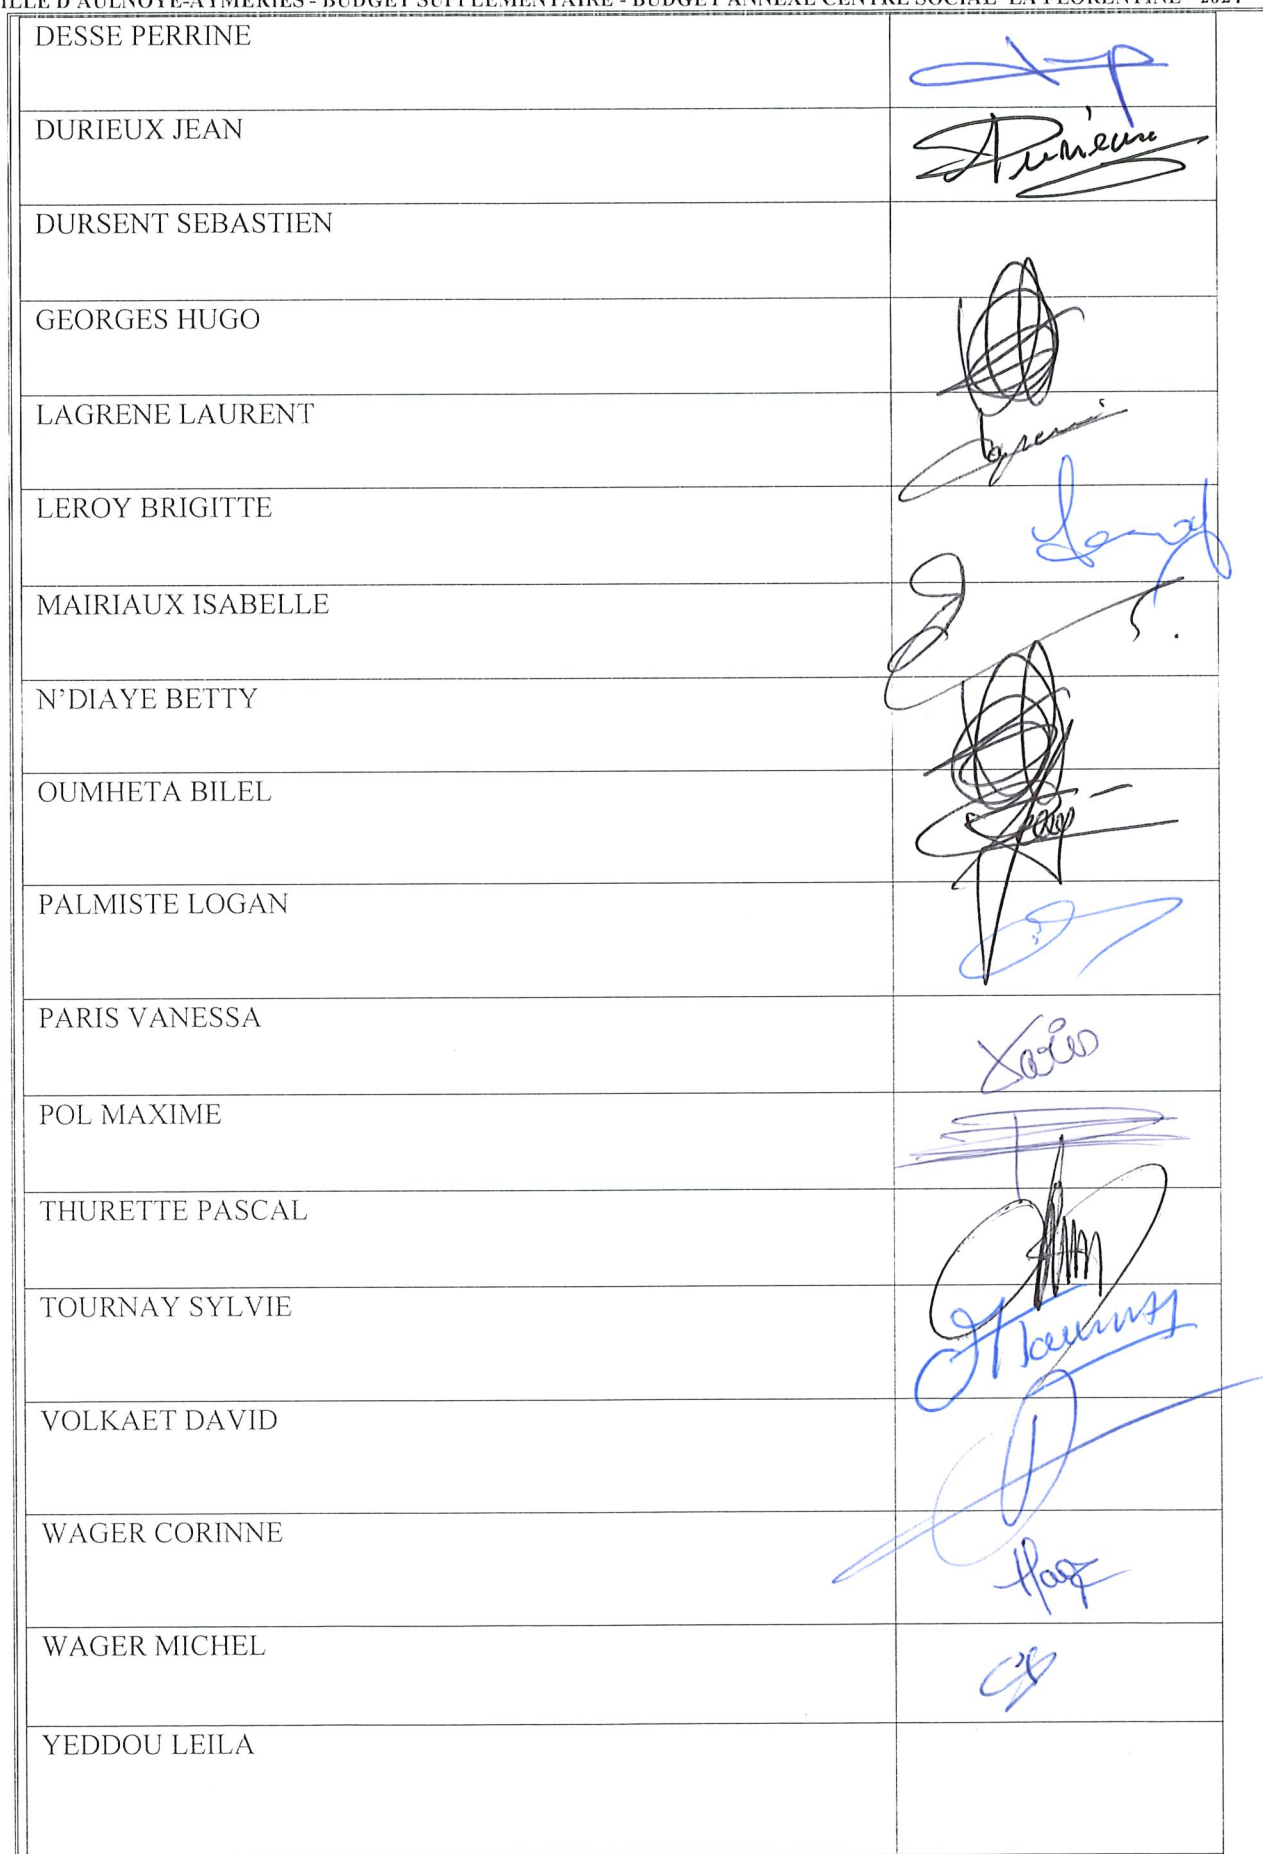 VILLE D'AULNOYE-AYMERIES - BUDGET SUPPLEMENTAIRE - BUDGET ANNEXE CENTRE SOCIAL "LA FLORENTINE" 2024
DESSE PERRINE
DURIEUX JEAN
DURSENT SEBASTIEN
GEORGES HUGO
LAGRENE LAURENT
LEROY BRIGITTE
MAIRIAUX ISABELLE
N'DIAYE BETTY
OUMHETA BILEL
PALMISTE LOGAN
PARIS VANESSA
POL MAXIME
THURETTE PASCAL
TOURNAY SYLVIE
VOLKAET DAVID
WAGER CORINNE
WAGER MICHEL
YEDDOU LEILA